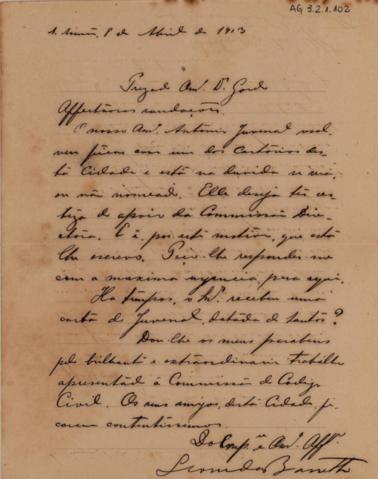 AG 3.2.1.102
S. Simão, 8 de Abril de 1913
Prezado Amº. Dr. Gordo
Affectuosas saudações.
O nosso Amº. Antonio Juvenal
ficar com um dos Cartorios des-
ta Cidade e está na duvida se será
ou não nomeado. Elle deseja ter cer-
teza do apoio da Commissão Dire-
ctora. E é, por este motivo, que esta
lhe escrevo. Peço-lhe responder-me
com a maxima urgencia, para aqui.
Ha tempos, o Sr. recebeu uma
carta do Juvenal, datada de Santos?
Dou-lhe os meus parabens
pelo brilhante e extraordinario trabalho
apresentado à Commissão do Codigo
Civil. Os seus amigos, desta Cidade fi-
caram contentissimos.
Do Comp.º e Amº. Affº.
Leonidas Barretto